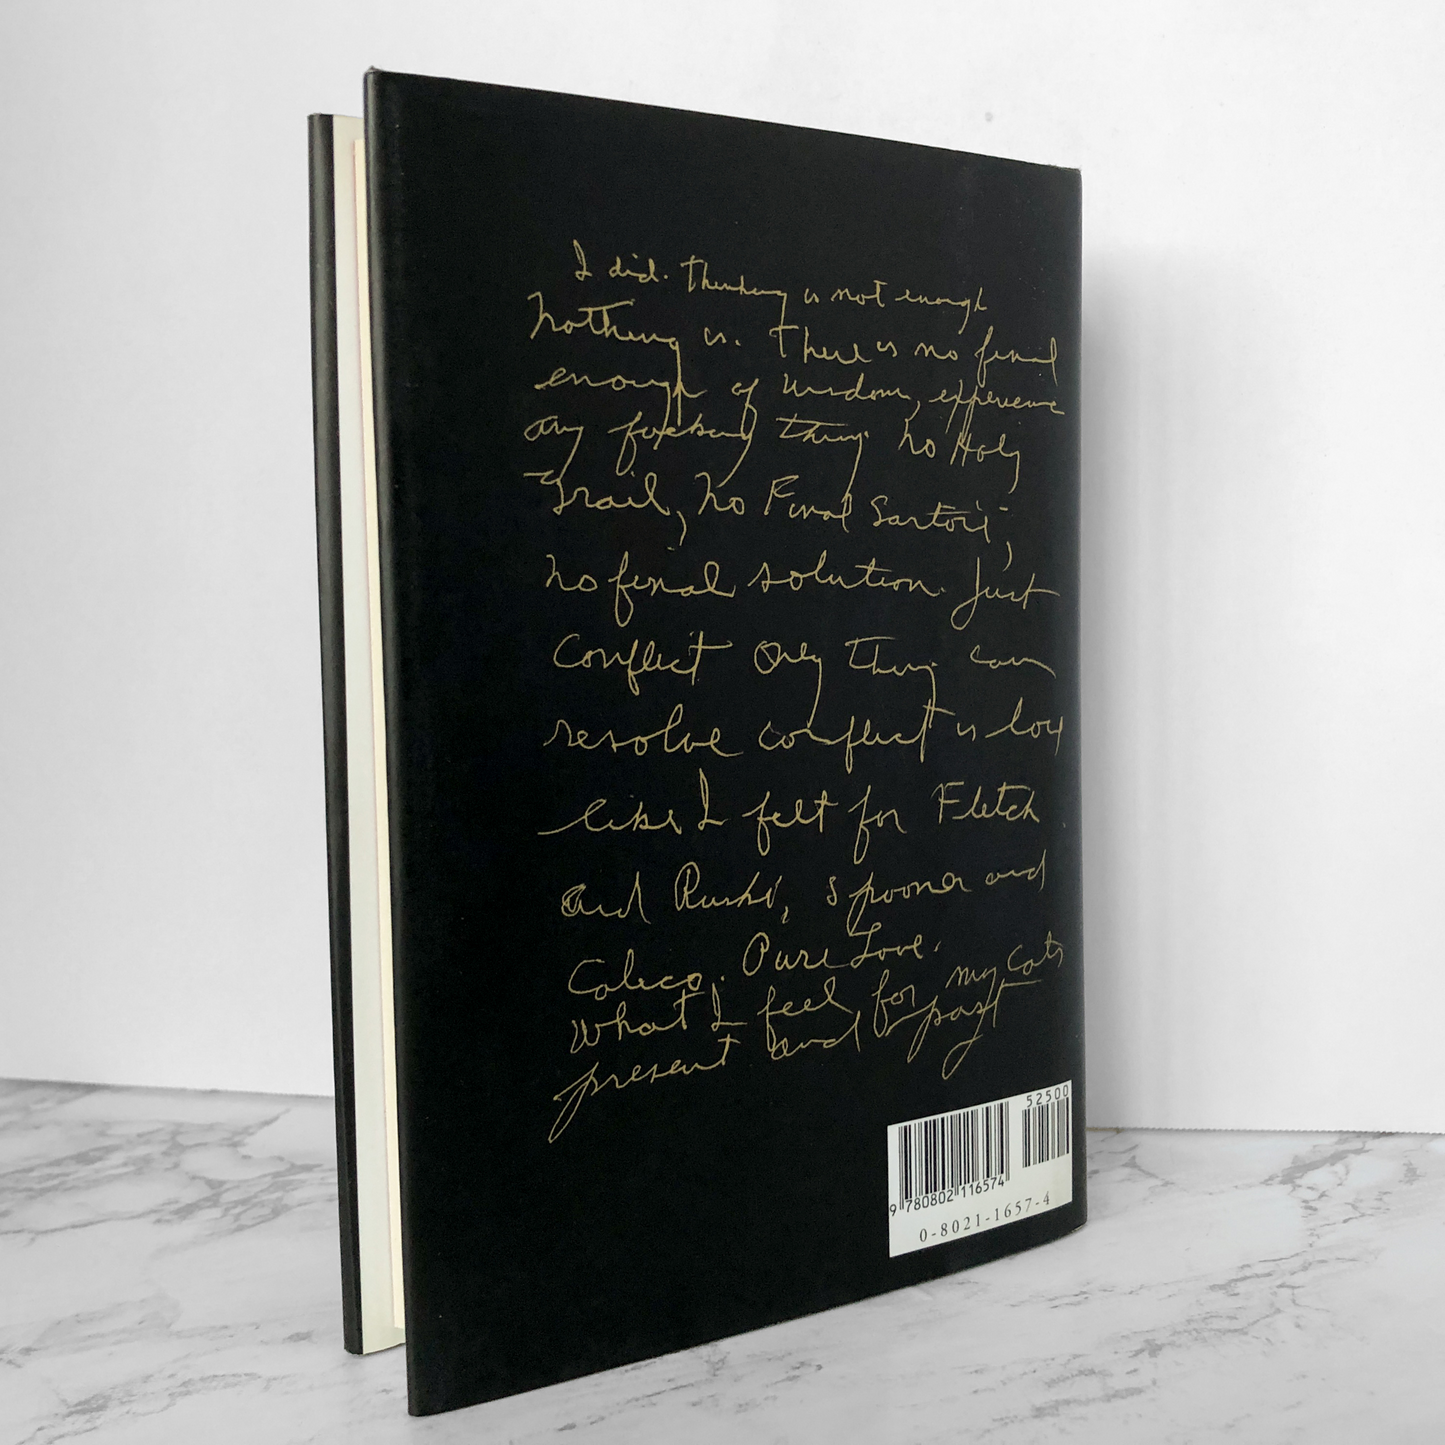 I did. Thinking is not enough
Nothing is. There is no final
enough of wisdom, experience
any fucking thing. No Holy
Grail, No Final Sartori,
no final solution. Just
conflict Only thing can
resolve conflict is love
like I felt for Fletch
and Ruski, Spooner and
Calico. Pure Love.
What I feel for my cats
present and past
52500
9 780802 116574
0-8021-1657-4